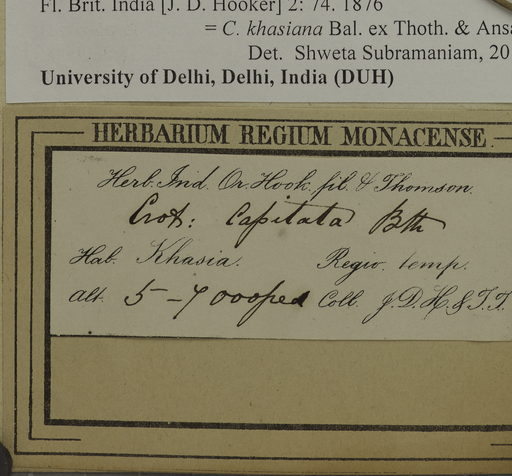 Fl. Brit. India [J. D. Hooker] 2: 74. 1876
= C. khasiana Bal. ex Thoth. & Ansa
Det. Shweta Subramaniam, 20
University of Delhi, Delhi, India (DUH)
HERBARIUM REGIUM MONACENSE
Herb. Ind. Or. Hook. fil. & Thomson.
Crot: capitata Bth
Hab. Khasia. Regio. temp.
Alt. 5-7000ped Coll. J.D.H. & T.T.